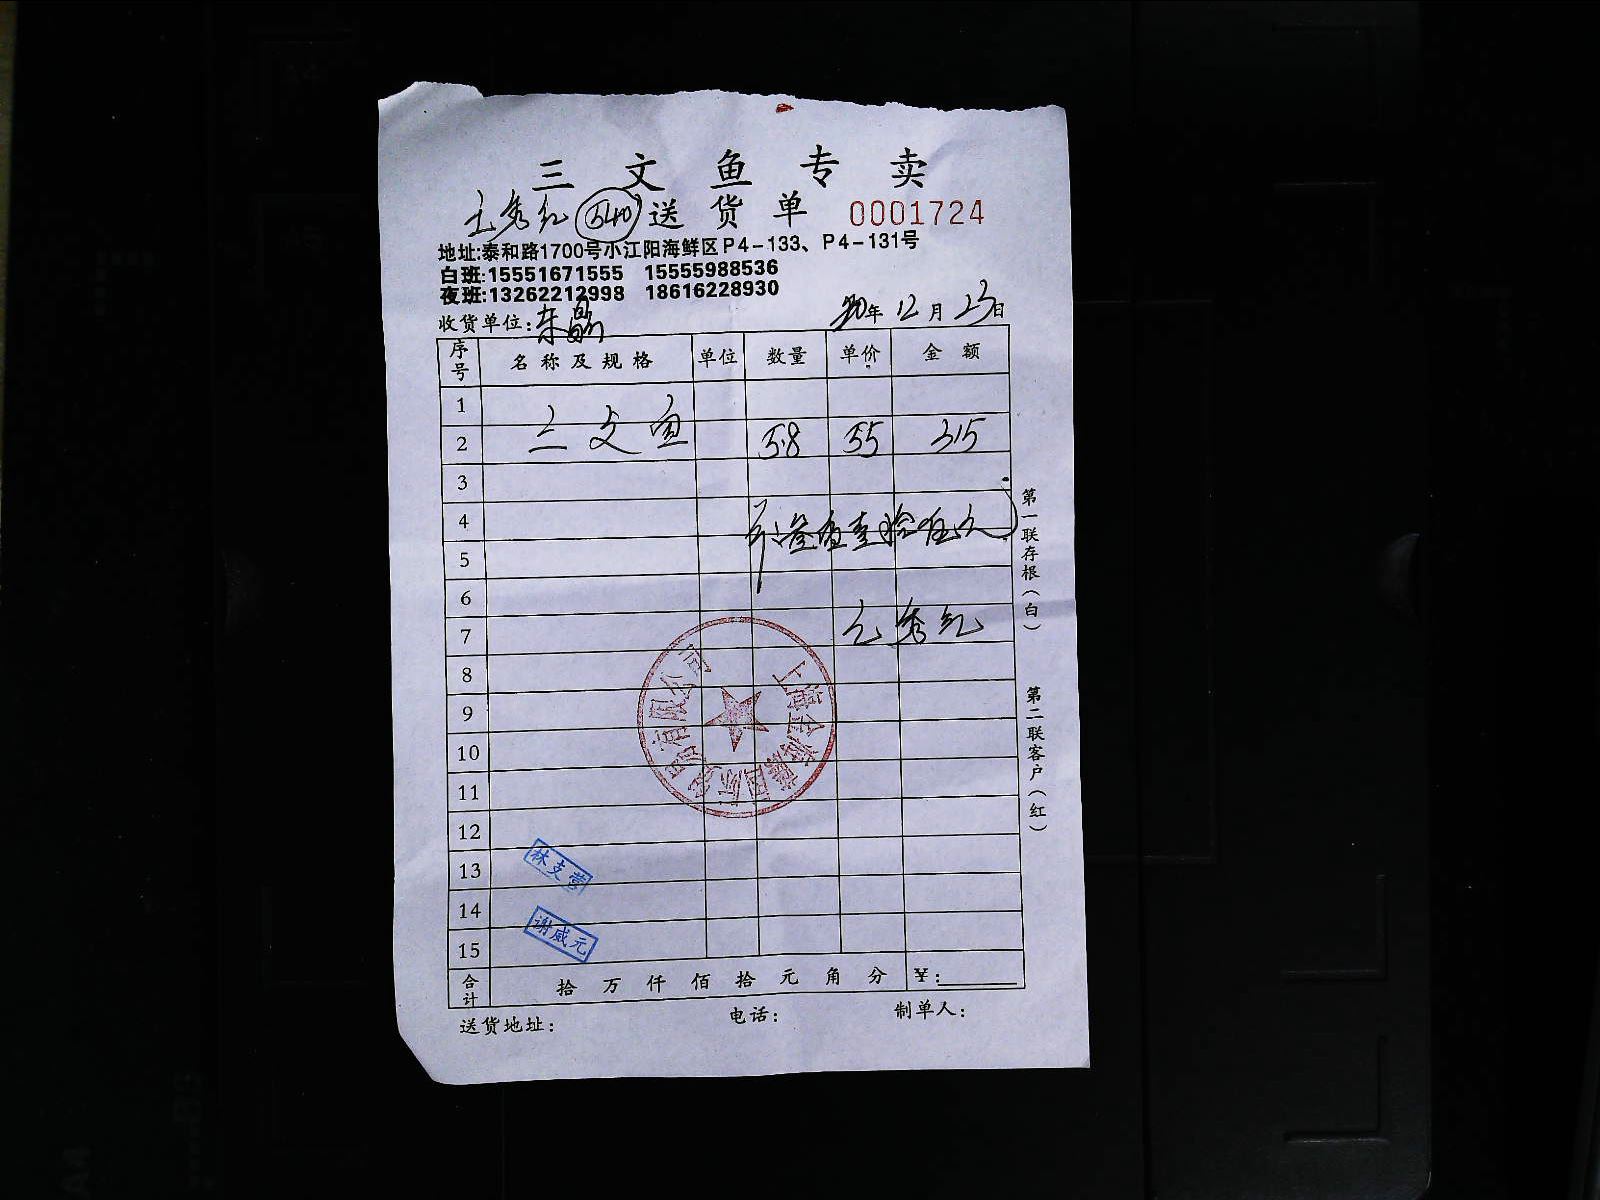 三文鱼专卖
540 送货单 0001724
地址:泰和路1700号小江阳海鲜区P4-133、P4-131号
白班:15551671555 15555988536
夜班:13262212998 18616228930
收货单位: 20年12月23日
序号 名称及规格 单位 数量 单价 金额
1
2 三文鱼 5.8 55 315
3
4
5
6
7
8
9
10
11
12
13
14
15
上海金海藤国际贸易有限公司
林支营
谢威元
合计 拾万仟佰拾元角分 ¥:
送货地址: 电话: 制单人:
第一联存根(白)
第二联客户(红)